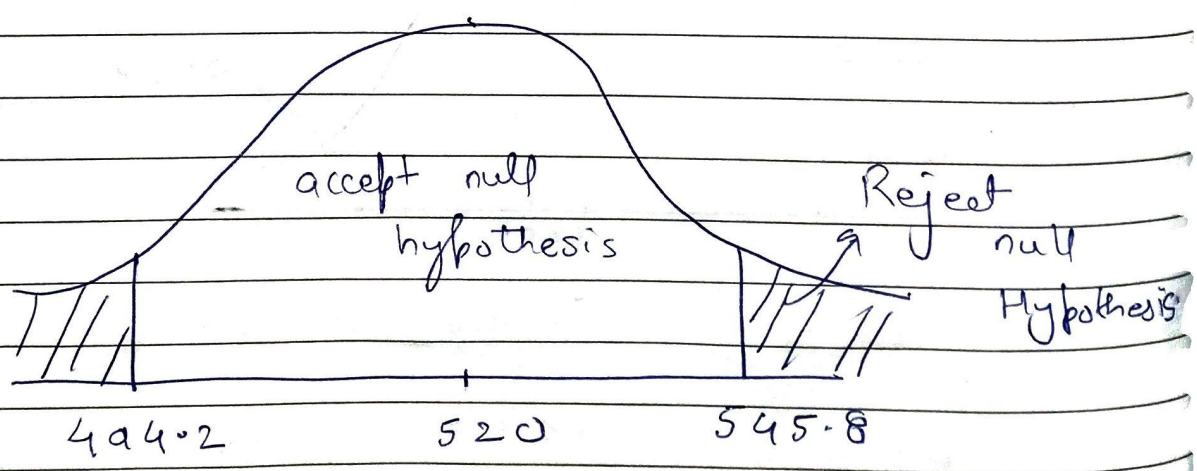 accept null
hypothesis
Reject
null
Hypothesis
494.2
520
545.8